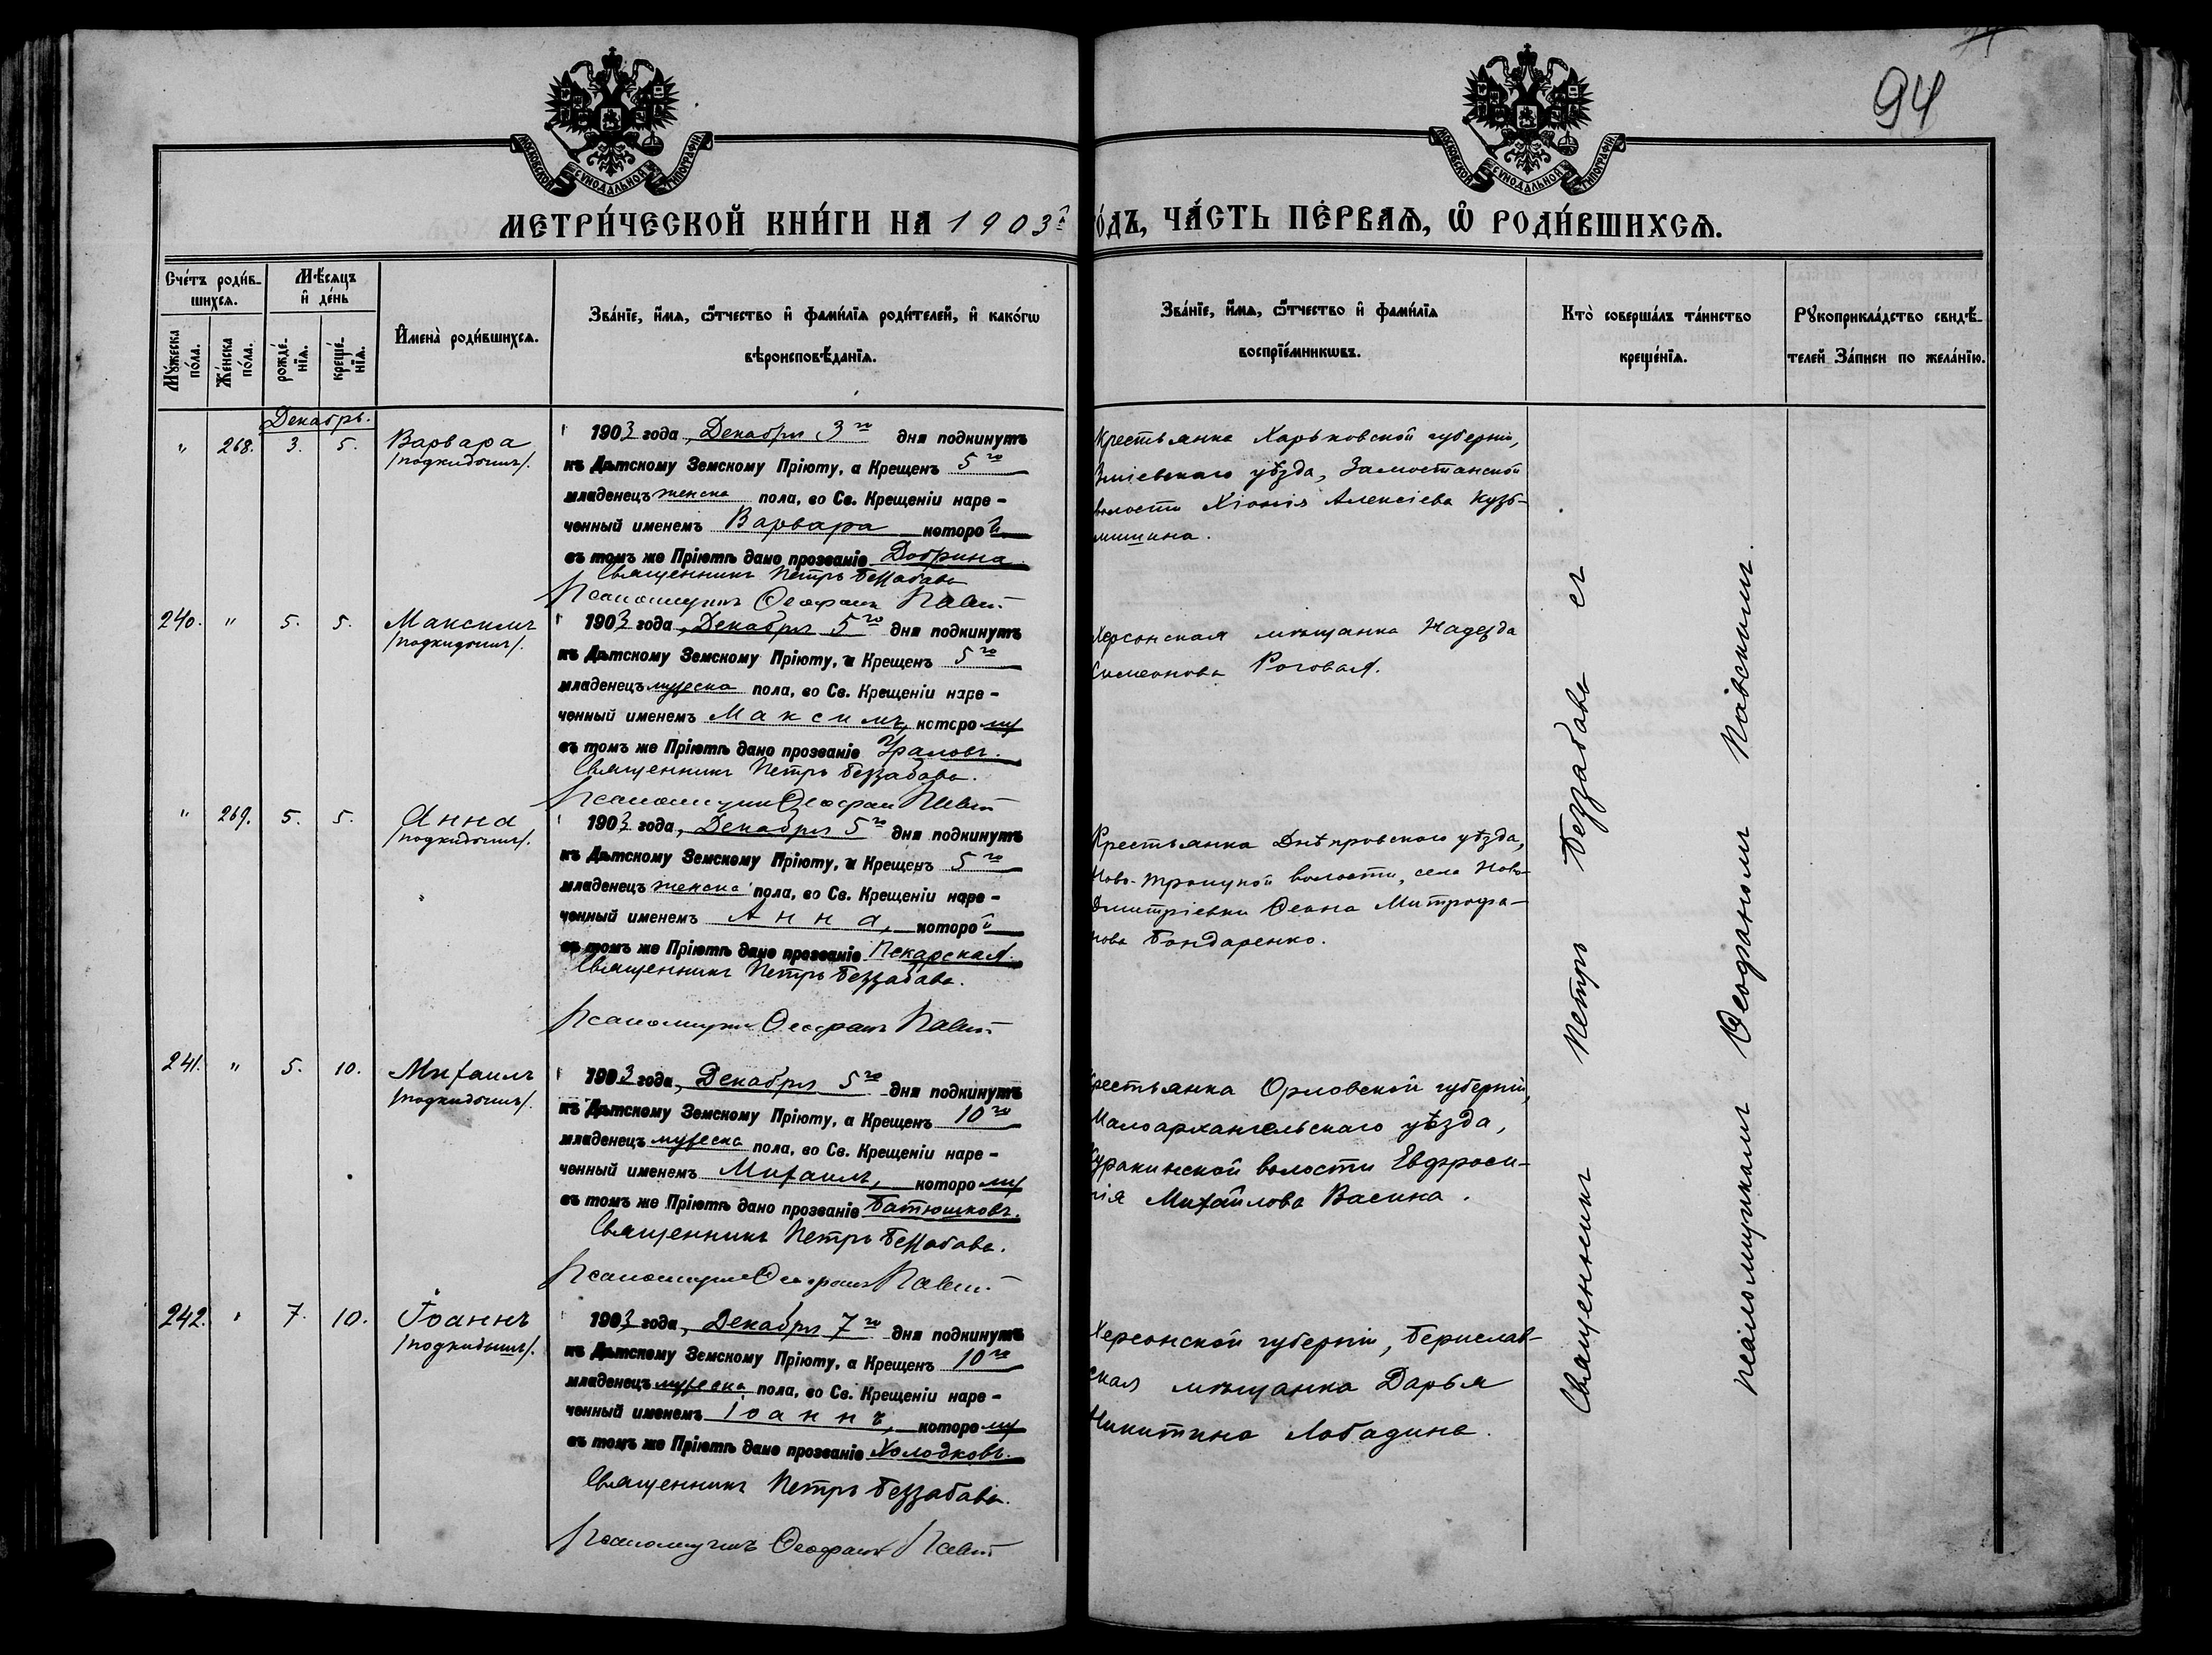 94
МОСКОВСКОЙ СѴНОДАЛЬНОЙ ТИПОГРАФІИ
МОСКОВСКОЙ СѴНОДАЛЬНОЙ ТИПОГРАФІИ
МЕТРИ́ЧЕСКОЙ КНИ́ГИ НА 1903й
о́дъ, ЧА́СТЬ ПЕ́РВАѦ, Ѡ҆ РОДИ́ВШИХСѦ.
Сче́тъ роди́в-
шихсѧ.
Мѣ́сяцъ
и҆ де́нь
Мꙋ́жеска
по́ла.
Же́нска
по́ла.
рожде́-
нїѧ.
креще́-
нїѧ.
И҆мена̀ роди́вшихсѧ.
Зва́нїе, и҆́мѧ, ѻ҆́тчество и҆ фами́лїѧ роди́телей, и҆ како́гѡ
вѣроисповѣ́данїѧ.
Зва́нїе, и҆́мѧ, ѻ҆́тчество и҆ фами́лїѧ
воспрїе́мникѡвъ.
Кто̀ соверша́лъ та́инство
креще́нїѧ.
Рꙋкоприкла́дство свидѣ́-
телей за́писи по жела́нїю.
Декабрь.
" 268. 3. 5. Варвара
/подкидышъ/.
1903 года, Декабря 3го дня подкинутъ
къ Дѣтскому Земскому Пріюту, а Крещенъ 5го
младенецъ женска пола, во Св. Крещеніи наре-
ченный именемъ Варвара которой
въ томъ же Пріютѣ дано прозваніе Добрина.
Священникъ Петръ Беззабава
Псаломщикъ Ѳеофанъ
Крестьянка Харьковской губерніи,
Зміевскаго уѣзда, Замостанской
волости Хіонія Алексіева Кузь-
мишина.
240. " 5. 5. Максимъ
/подкидышъ/.
1903 года, Декабря 5го дня подкинутъ
къ Дѣтскому Земскому Пріюту, а Крещенъ 5го
младенецъ мужеска пола, во Св. Крещеніи наре-
ченный именемъ Максимъ, которому
въ томъ же Пріютѣ дано прозваніе Ураловъ.
Священникъ Петръ Беззабава.
Псаломщикъ Ѳеофан
Херсонская мѣщанка Надежда
Симеонова Роговая.
" 269. 5. 5. Анна
/подкидышъ/.
1903 года, Декабря 5го дня подкинутъ
къ Дѣтскому Земскому Пріюту, а Крещенъ 5го
младенецъ женска пола, во Св. Крещеніи наре-
ченный именемъ Анна, которой
въ томъ же Пріютѣ дано прозваніе Пекарская.
Священникъ Петръ Беззабава.
Псаломщикъ Ѳеофанъ
Крестьянка Днѣпровского уѣзда,
Ново-Троицкой волости, села Ново-
Дмитріевки Ѳеона Митрофа-
нова Бондаренко.
241. " 5. 10. Михаилъ
/подкидышъ/.
1903 года, Декабря 5го дня подкинутъ
къ Дѣтскому Земскому Пріюту, а Крещенъ 10го
младенецъ мужеска пола, во Св. Крещеніи наре-
ченный именемъ Михаилъ, которому
въ томъ же Пріютѣ дано прозваніе Батюшковъ.
Священникъ Петръ Беззабава.
Псаломщикъ Ѳеофанъ
Крестьянка Орловской губерніи,
Малоархангельскаго уѣзда,
Куракинской волости Евфроси-
нія Михайлова Васина.
242. " 7. 10. Іоаннъ
/подкидышъ/.
1903 года, Декабря 7го дня подкинутъ
къ Дѣтскому Земскому Пріюту, а Крещенъ 10го
младенецъ мужеска пола, во Св. Крещеніи наре-
ченный именемъ Іоаннъ, которому
въ томъ же Пріютѣ дано прозваніе Холодковъ.
Священникъ Петръ Беззабава.
Псаломщикъ Ѳеофанъ
Херсонской губерніи, Берислав-
ская мѣщанка Дарья
Никитина Лободина.
Священникъ Петръ Беззабава съ
псаломщикомъ Ѳеофаномъ Павскимъ.